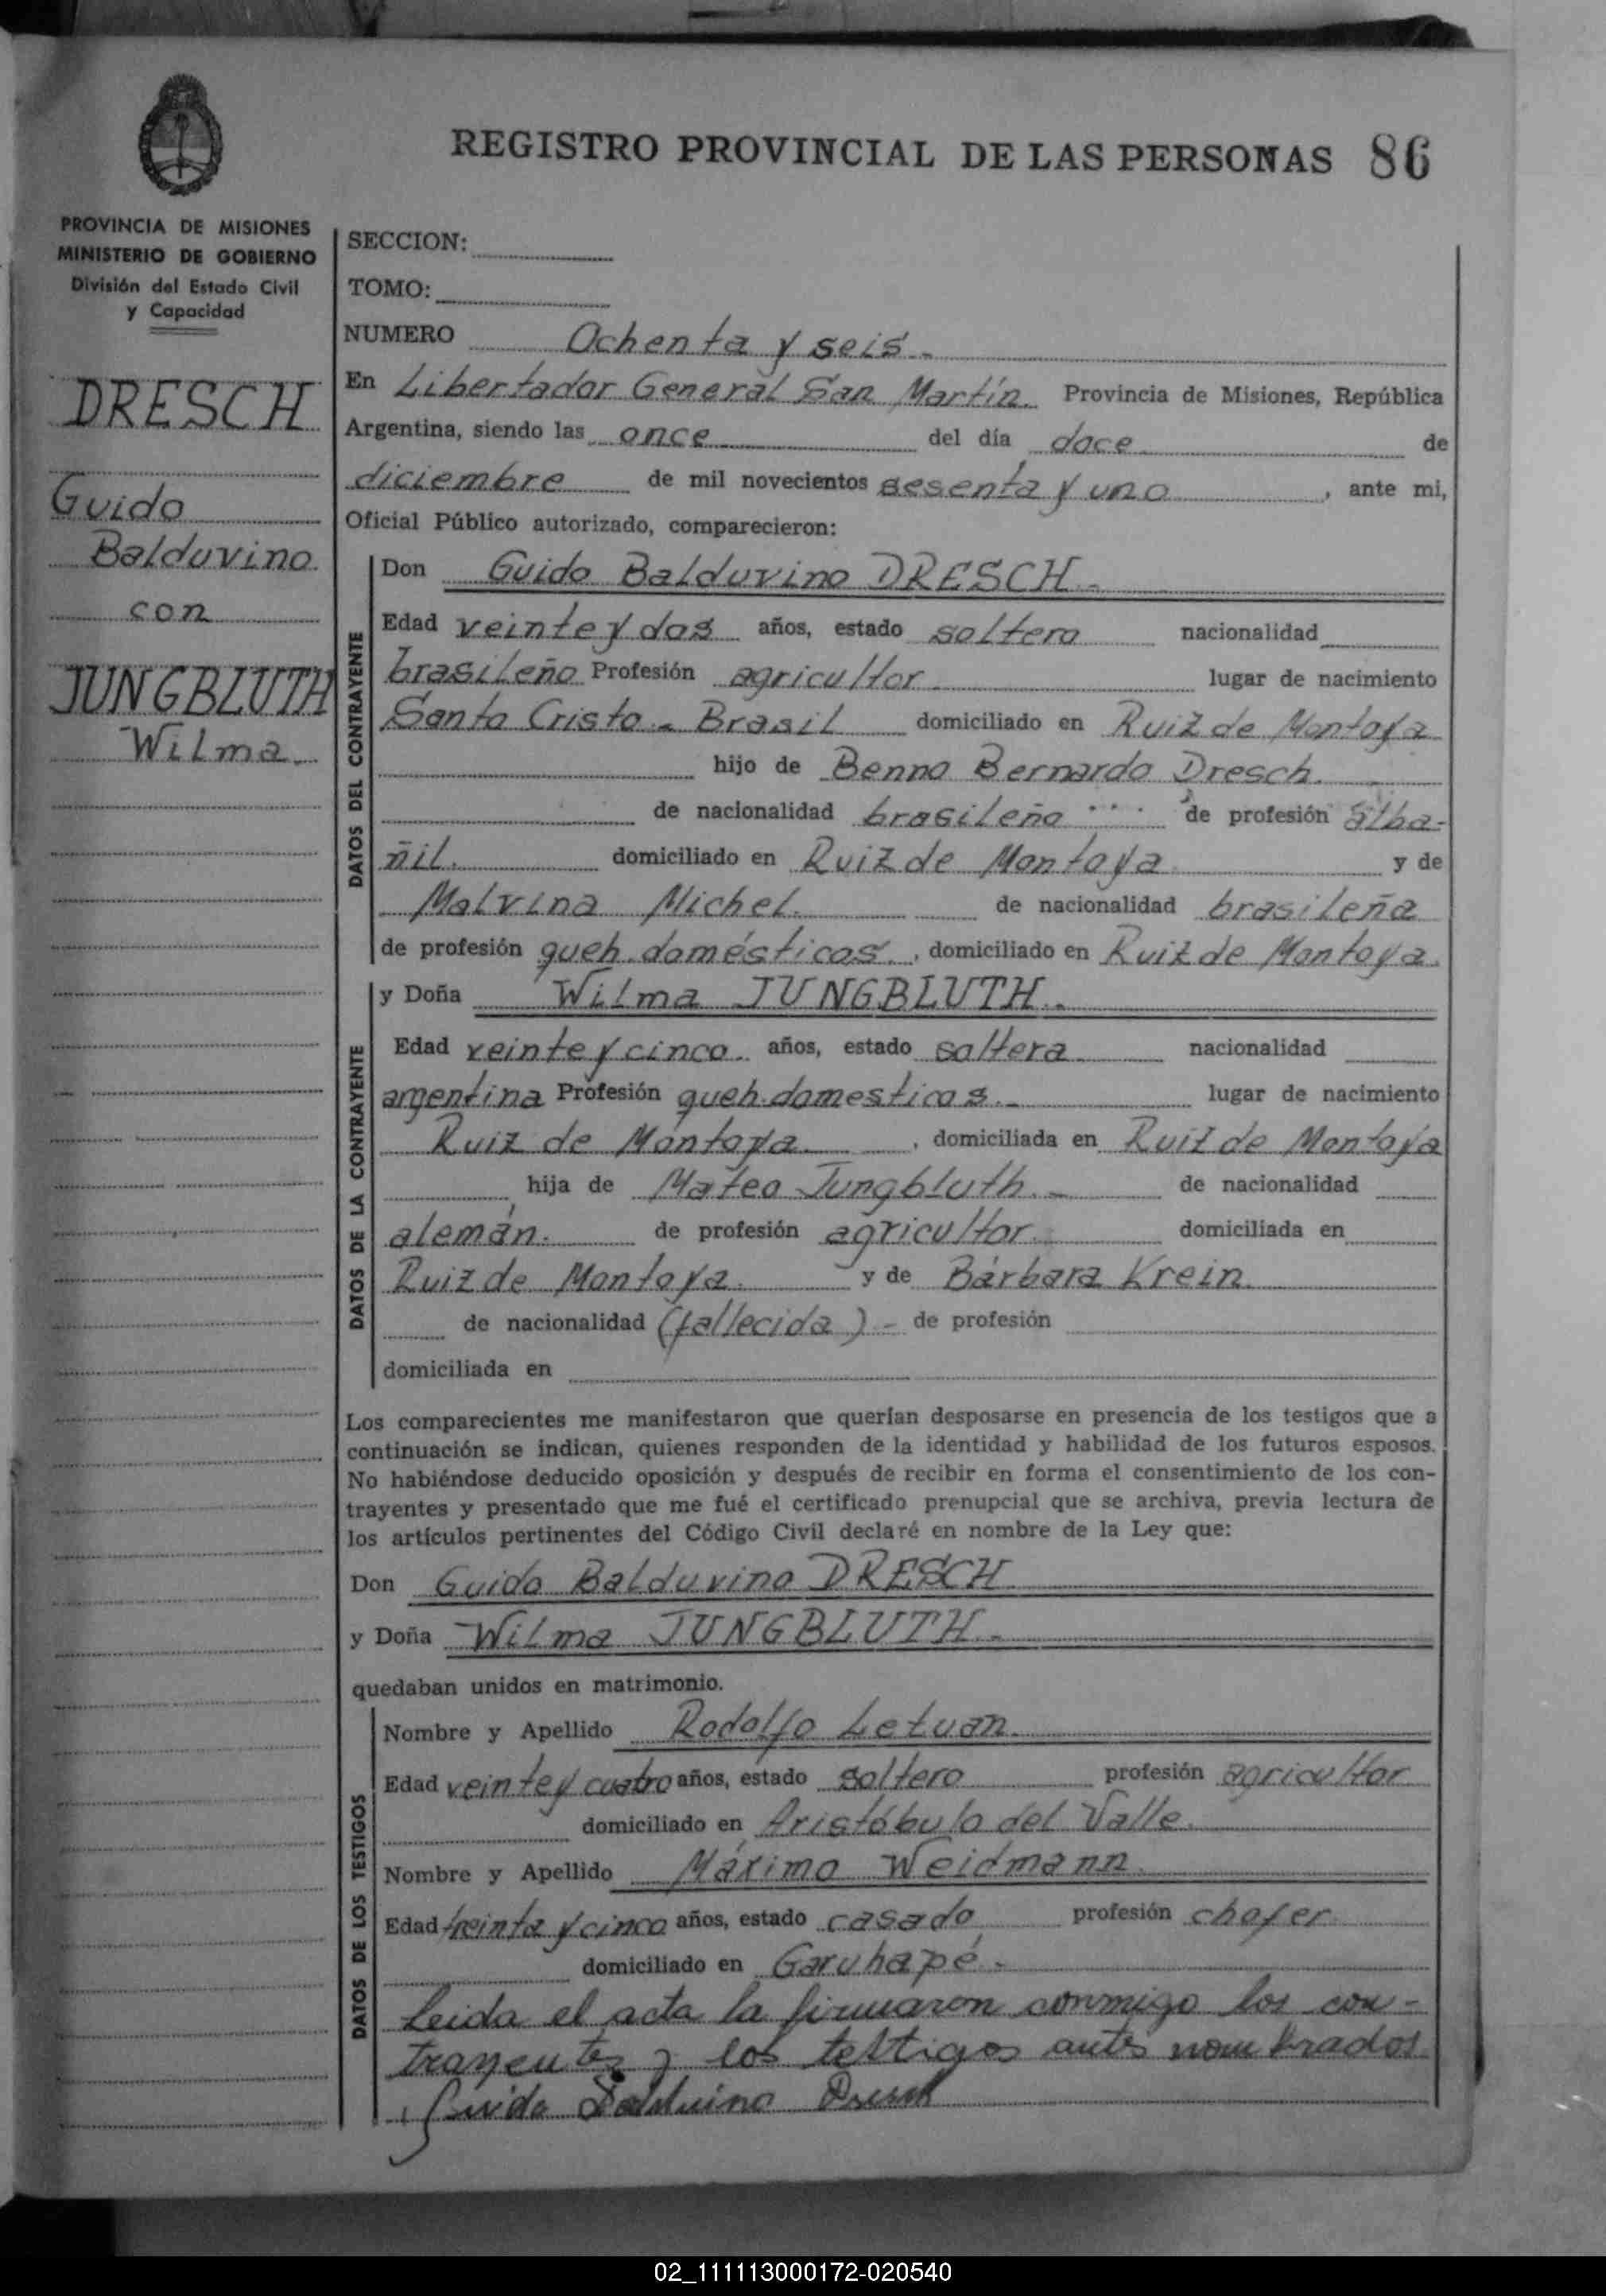 REGISTRO PROVINCIAL DE LAS PERSONAS 86
PROVINCIA DE MISIONES
MINISTERIO DE GOBIERNO
División del Estado Civil
y Capacidad
DRESCH
Guido
Balduvino
con
JUNGBLUTH
Wilma.
SECCION:
TOMO:
NUMERO Ochenta y seis.-
En Libertador General San Martín. Provincia de Misiones, República
Argentina, siendo las once del día doce de
diciembre de mil novecientos sesenta y uno, ante mi,
Oficial Público autorizado, comparecieron:
DATOS DEL CONTRAYENTE
Don Guido Balduvino DRESCH.-
Edad veinte y dos años, estado soltero nacionalidad
brasileño Profesión agricultor lugar de nacimiento
Santo Cristo - Brasil domiciliado en Ruiz de Montoya
hijo de Benno Bernardo Dresch.
de nacionalidad brasileño de profesión alba-
ñil. domiciliado en Ruiz de Montoya y de
Malvina Michel. de nacionalidad brasileña
de profesión queh. domésticos., domiciliado en Ruiz de Montoya.
DATOS DE LA CONTRAYENTE
y Doña Wilma JUNGBLUTH.-
Edad veinte y cinco. años, estado soltera nacionalidad
argentina Profesión queh. domesticos.- lugar de nacimiento
Ruiz de Montoya., domiciliada en Ruiz de Montoya
hija de Mateo Jungbluth.- de nacionalidad
alemán. de profesión agricultor. domiciliada en
Ruiz de Montoya. y de Bárbara Krein.
de nacionalidad (fallecida).- de profesión
domiciliada en
Los comparecientes me manifestaron que querían desposarse en presencia de los testigos que a
continuación se indican, quienes responden de la identidad y habilidad de los futuros esposos.
No habiéndose deducido oposición y después de recibir en forma el consentimiento de los con-
trayentes y presentado que me fué el certificado prenupcial que se archiva, previa lectura de
los artículos pertinentes del Código Civil declaré en nombre de la Ley que:
Don Guido Balduvino DRESCH
y Doña Wilma JUNGBLUTH.-
quedaban unidos en matrimonio.
DATOS DE LOS TESTIGOS
Nombre y Apellido Rodolfo Letuan.
Edad veinte y cuatro años, estado soltero profesión agricultor
domiciliado en Aristóbulo del Valle.
Nombre y Apellido Máximo Weidmann.
Edad treinta y cinco años, estado casado profesión chofer.
domiciliado en Garuhapé.-
Leida el acta la firmaron conmigo los con-
trayentes y los testigos antes nombrados
Guido Balduino Dresch
02_111113000172-020540